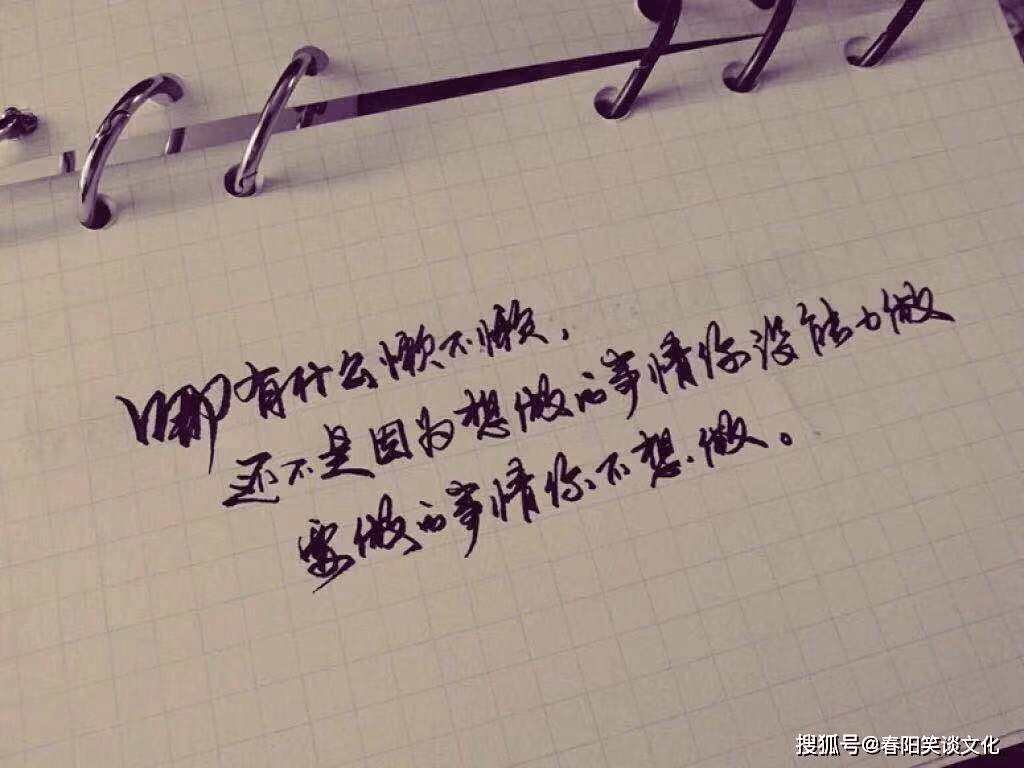 哪有什么懒不懒，
还不是因为想做的事情你没能力做
要做的事情你不想做。
搜狐号@春阳笑谈文化